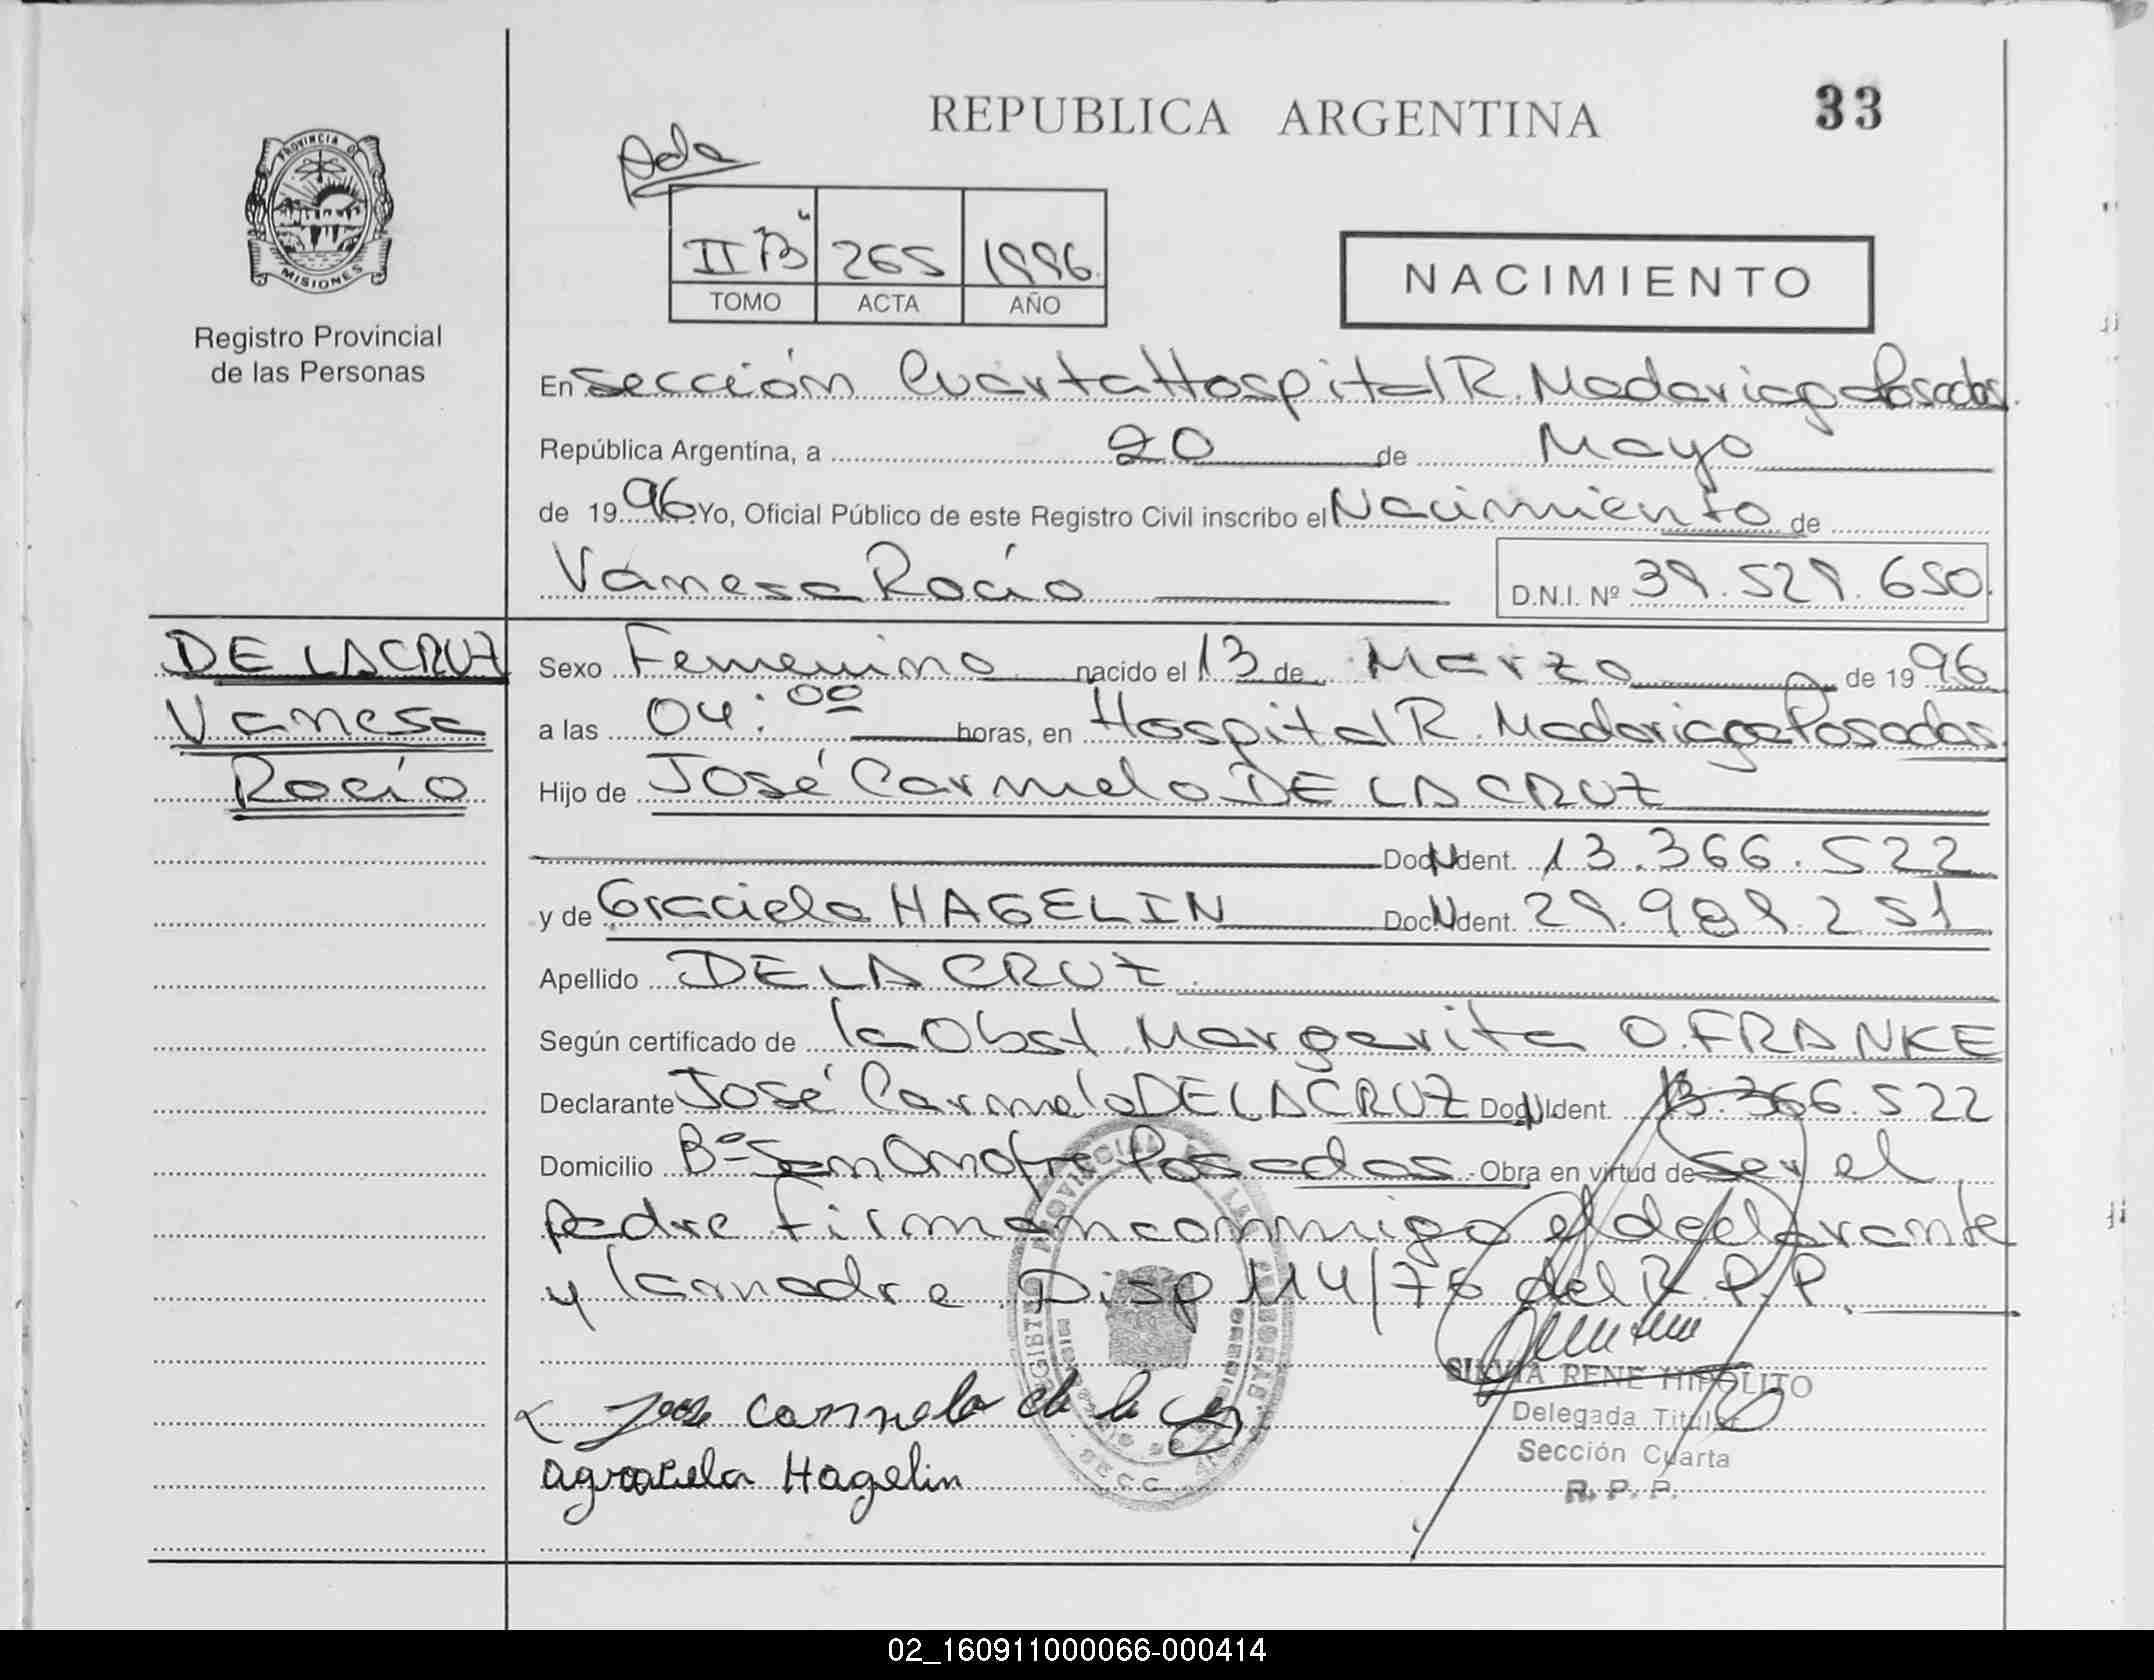 REPUBLICA ARGENTINA
33
PROVINCIA DE
MISIONES
Registro Provincial
de las Personas
II "B" 265 1996
TOMO ACTA AÑO
NACIMIENTO
En Sección Cuarta Hospital R. Madariaga Posadas
República Argentina, a 20 de Mayo
de 1996 Yo, Oficial Público de este Registro Civil inscribo el Nacimiento de
Vanesa Rocío D.N.I. Nº 39.529.650
DE LA CRUZ
Vanesa
Rocío
Sexo Femenino nacido el 13 de Marzo de 1996
a las 04:00 horas, en Hospital R. Madariaga Posadas
Hijo de José Carmelo DE LA CRUZ
Doc. Ident. 13.366.522
y de Graciela HAGELIN Doc. Ident. 29.989.251
Apellido DE LA CRUZ
Según certificado de la Obst Margarita O. FRANKE
Declarante José Carmelo DE LA CRUZ Doc. Ident. 13.366.522
Domicilio Bº San Onofre Posadas Obra en virtud de ser el
padre firman conmigo el declarante
y la madre Disp 114/76 del R.P.P.
Jose Carmelo de la Cruz
Agraciela Hagelin
SILVIA RENE HIPOLITO
Delegada Titular
Sección Cuarta
R. P. P.
02_160911000066-000414